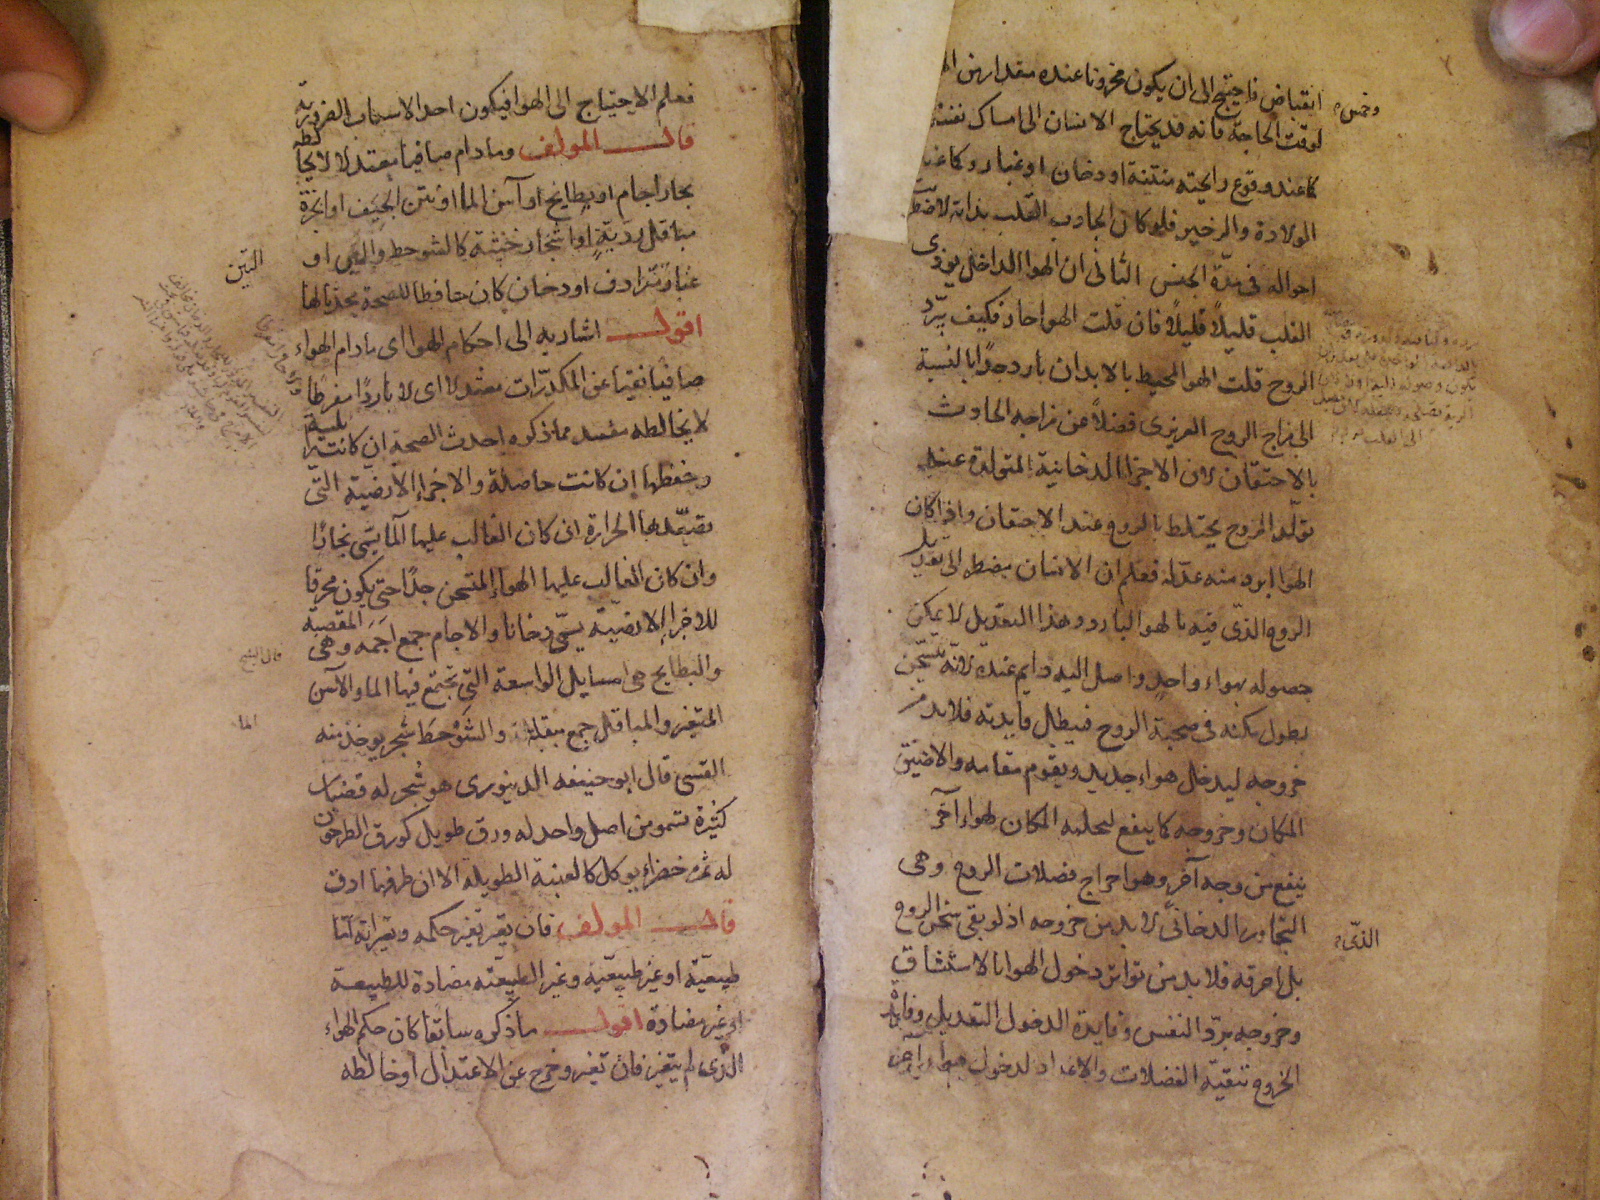 انقباض فاحتيج الى ان يكون مخزونا عنده مقدار من
لوقت الحاجة فانه قد يحتاج الانسان الى امساك نفسه
كما عند وقوع رايحته منتنة او دخان او غبار وكما عند
الولادة والزحير فلو كان الجاذب القلب بذاته
احواله فى مدة الحبس الثانى ان الهوا الداخل يوذى
القلب قليلاً قليلاً فان قلت الهوا حار فكيف يبرّد
الروح قلت الهوا المحيط بالابدان بارد جدًا بالنسبة
الى مزاج الروح الغريزى فضلاً عن مزاجه الحادث
بالاحتقان لان الاجزا الدخانية المتولدة عند
تولّد الروح يختلط بالروح عند الاحتقان واذا كان
الهوا ابرد منه عدّله فعلم ان الانسان يضطر الى تعديل
الروح الذى فيه بالهوا البارد وهذا التعديل لا يمكن
حصوله بهواء واحد واصل اليه دايم عنده لانّه يتسخّن
بطول مكثه فى صحبة الروح فيبطل فايدته فلابد من
خروجه ليدخل هواء جديد ويقوم مقامه والا ضيّق
المكان وخروجه كما ينفع لتخلية المكان لهواء آخر
ينفع من وجه آخر وهو اخراج فضلات الروح وهى
البخار الدخانى لابد من خروجه اذ لو بقى سخن الروح
بل احرقه فلا بد من تواتر دخول الهوا بالاستنشاق
وخروجه بردّ النفس وفايدة الدخول التعديل وفايدة
الخروج تنقية الفضلات والاعداد لدخول هواء آخر
وخمس
الذى
فعلم الاحتياج الى الهوا فيكون احد الاسباب الضرورية
قال المولف وما دام صافيا معتدلا لا يخالطه
بخار اجام او بطايح او آسن الما او نتن الجيف او ابخرة
مباقل رديّة او اشجار خبيثة كالشوحط والتين او
غبار مترادف او دخان كان حافظا للصحة محدثا لها
اقول اشار به الى احكام الهوا اى ما دام الهواء
صافيا نقيا عن المكدّرات معتدلا اى لا باردًا مفرطا
لا يخالطه مفسد مما ذكره احدث الصحة ان كانت زايلة
وحفظها ان كانت حاصلة والاجزاء الارضية التّى
تصعّدها الحرارة ان كان الغالب عليها الما يسمّى بخارًا
وان كان الغالب عليها الهواء المتسخن جدًا حتى يكون محرقا
للاجزاء الارضيّة يسمّى دخانا والاجام جمع اجَمَه وهى المقصبة
والبطايح هى امسايل الواسعة التى تجتمع فيها الما والآسن
المتغير والمباقل جمع مبقلة والشَّوْحَط شجر يوخذ منه
القسى قال ابو حنيفه الدينورى هو شجر له قضبان
كثيرة تسمو من اصل واحد له ورق طويل كورق الطرخون
له ثمرة خضراء يوكل كالعنبة الطويلة الا ان طرفها ادق
قال المولف فان تغير تغير حكمه وتغيراته امّا
طبيعيّة او غير طبيعيّة وغير الطبيعيّة مضادة للطبيعة
او غير مضادة اقول ما ذكره سابقا كان حكم الهواء
الذى لم يتغير فان تغير وخرج عن الاعتدال او خالطه
التين
قال الشيخ
الما